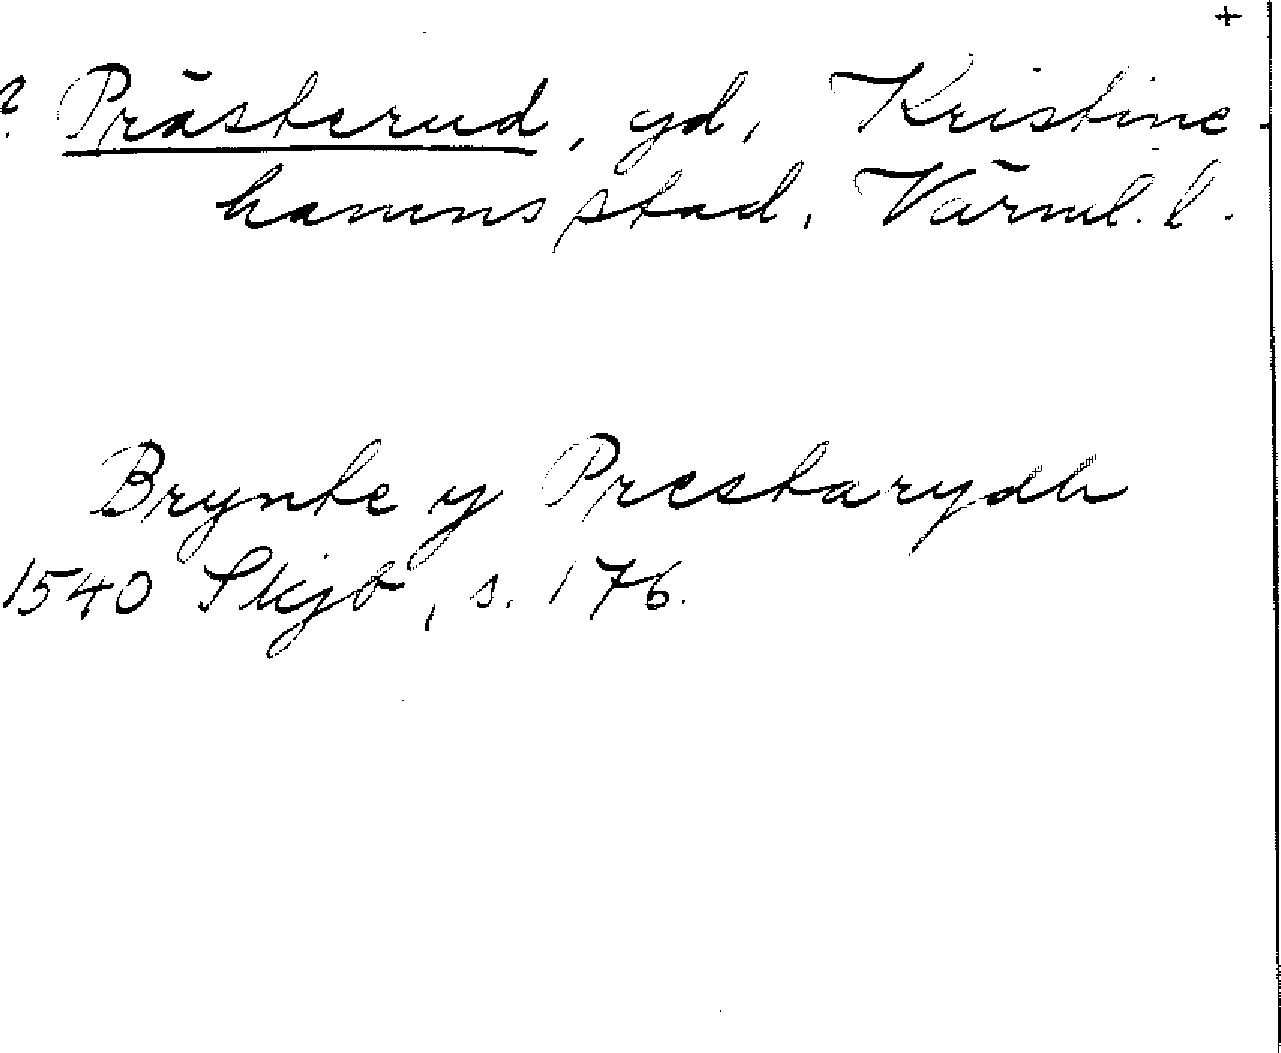 +
? Prästerud, gd, Kristine-
hamns stad, Värml. l.
Brynte y Prestarydh
1540 Skjb, s. 176.